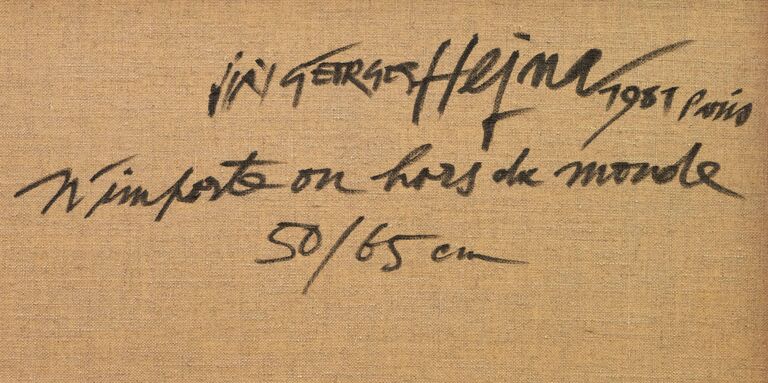 Jiří GEORGES Hejna / 1981 Paris
N'importe où hors du monde
50/65 cm